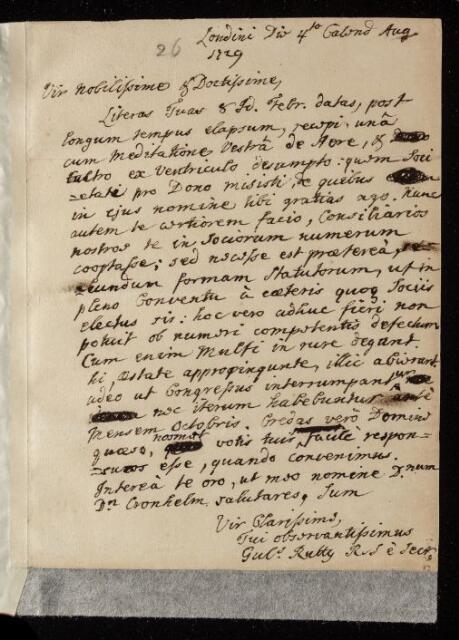 26
Londini Die 4to Calend Aug
1729
Vir Nobilissime & Doctissime,
Literas Tuas & Id. Febr. datas, post
longum tempus elapsum, recepi, unâ
cum Meditatione Vestrâ de Aere, &
ex Ventriculo desumpto: quem Soci
-etati pro Dono misisti, de quibus
in ejus nomine tibi gratias ago. Nunc
autem te certiorem facio, Consiliarios
nostros te in Sociorum numerum
cooptasse; sed necesse est præterea, se-
-cundum formam Statutorum, ut in
pleno Conventu à cæteris quoq Sociis
electus sis: hoc vero adhuc fieri non
potuit ob numeri competentis defectum
Cum enim Multi in rure degant.
hi, æstate appropinquante, illic abierant
ideo ut Congressus interrumpantur
nec iterum habebuntur antè
Mensem Octobris. Credas verò Domine
quæso, votis tuis, facilè respon-
-suros esse, quando convenimus.
Intereà te oro, ut meo nomine D.num
Dn Cronhelm salutares. Sum
Vir Clarissime,
Tui observantissimus
Gul.s Rutty RSS è Secr.